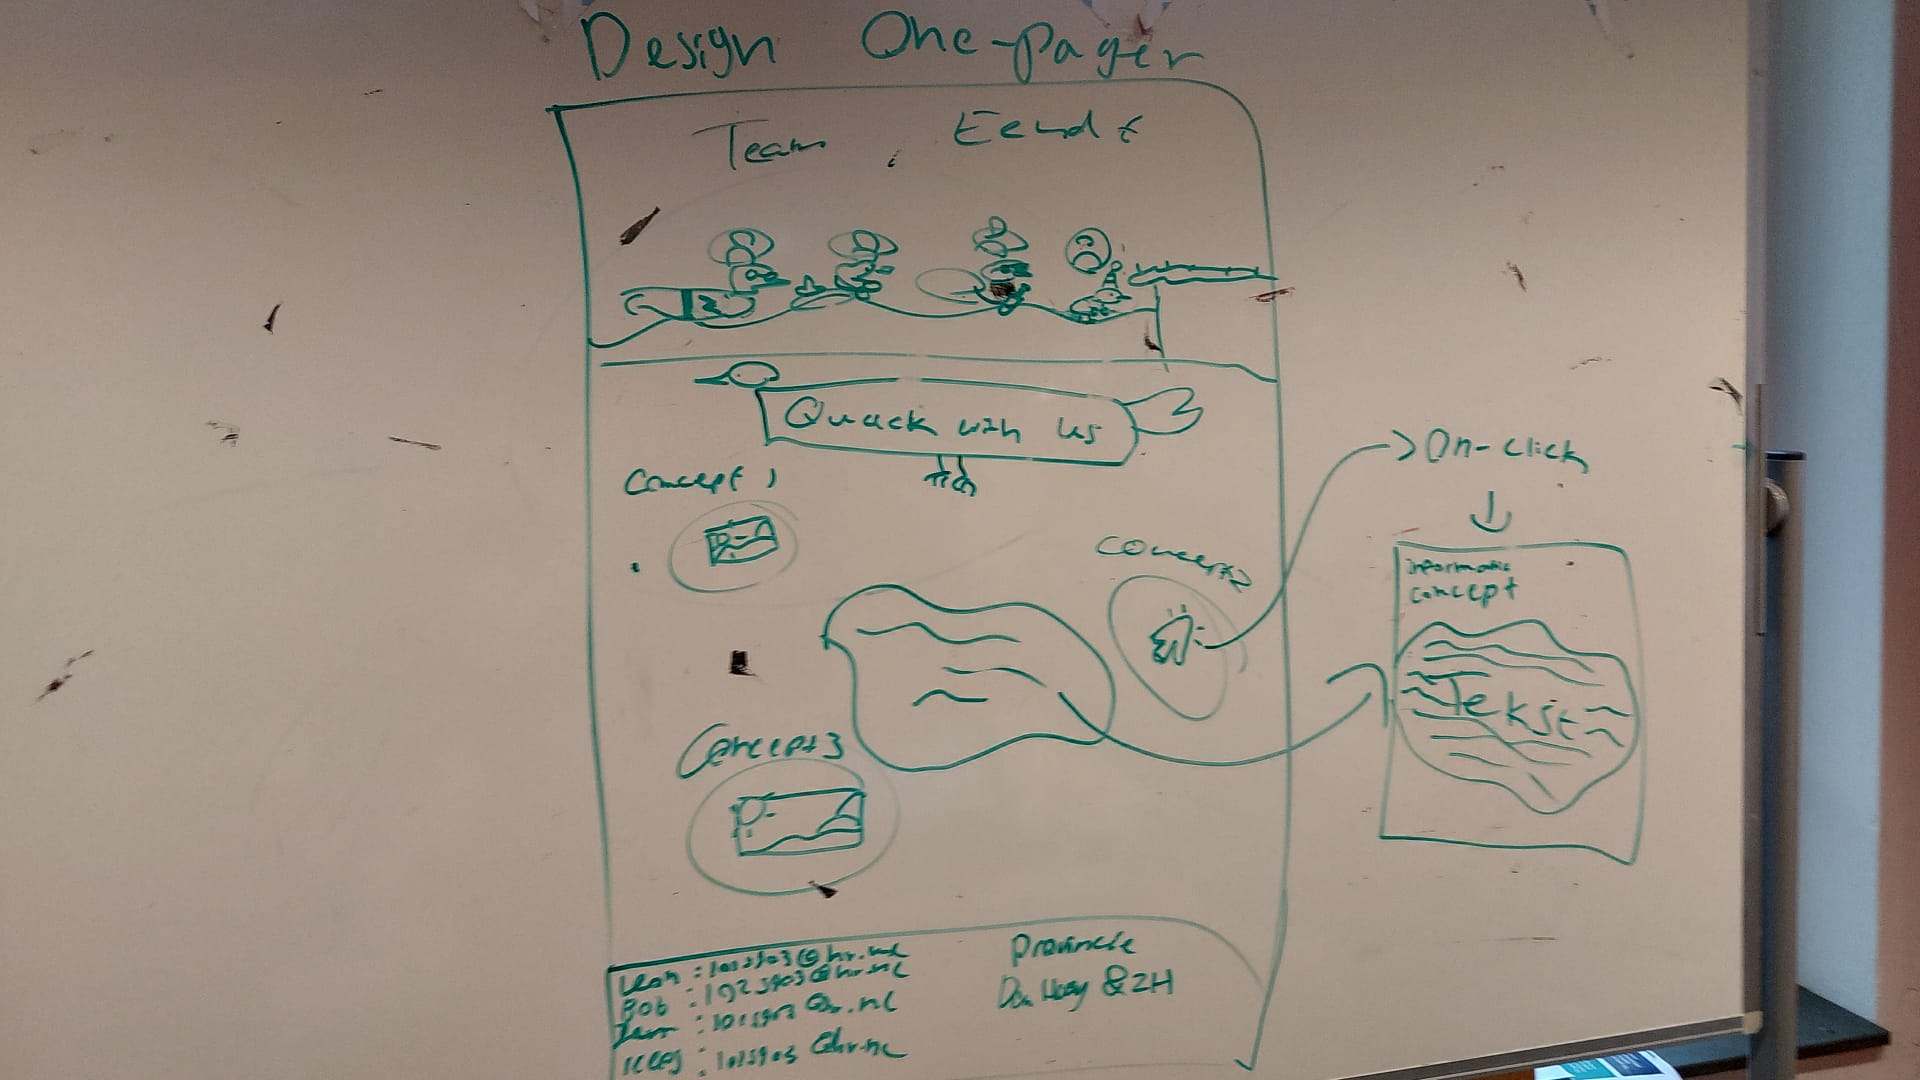 Design One-pager
Team Eendt
Quack with us
Concept 1
Concept2
Concept3
On-click
informatie
concept
Tekst
Leon : @hr.nl
Bob : @hr.nl
@hr.nl
Kees : @hr.nl
Provincie
Den Haag & ZH